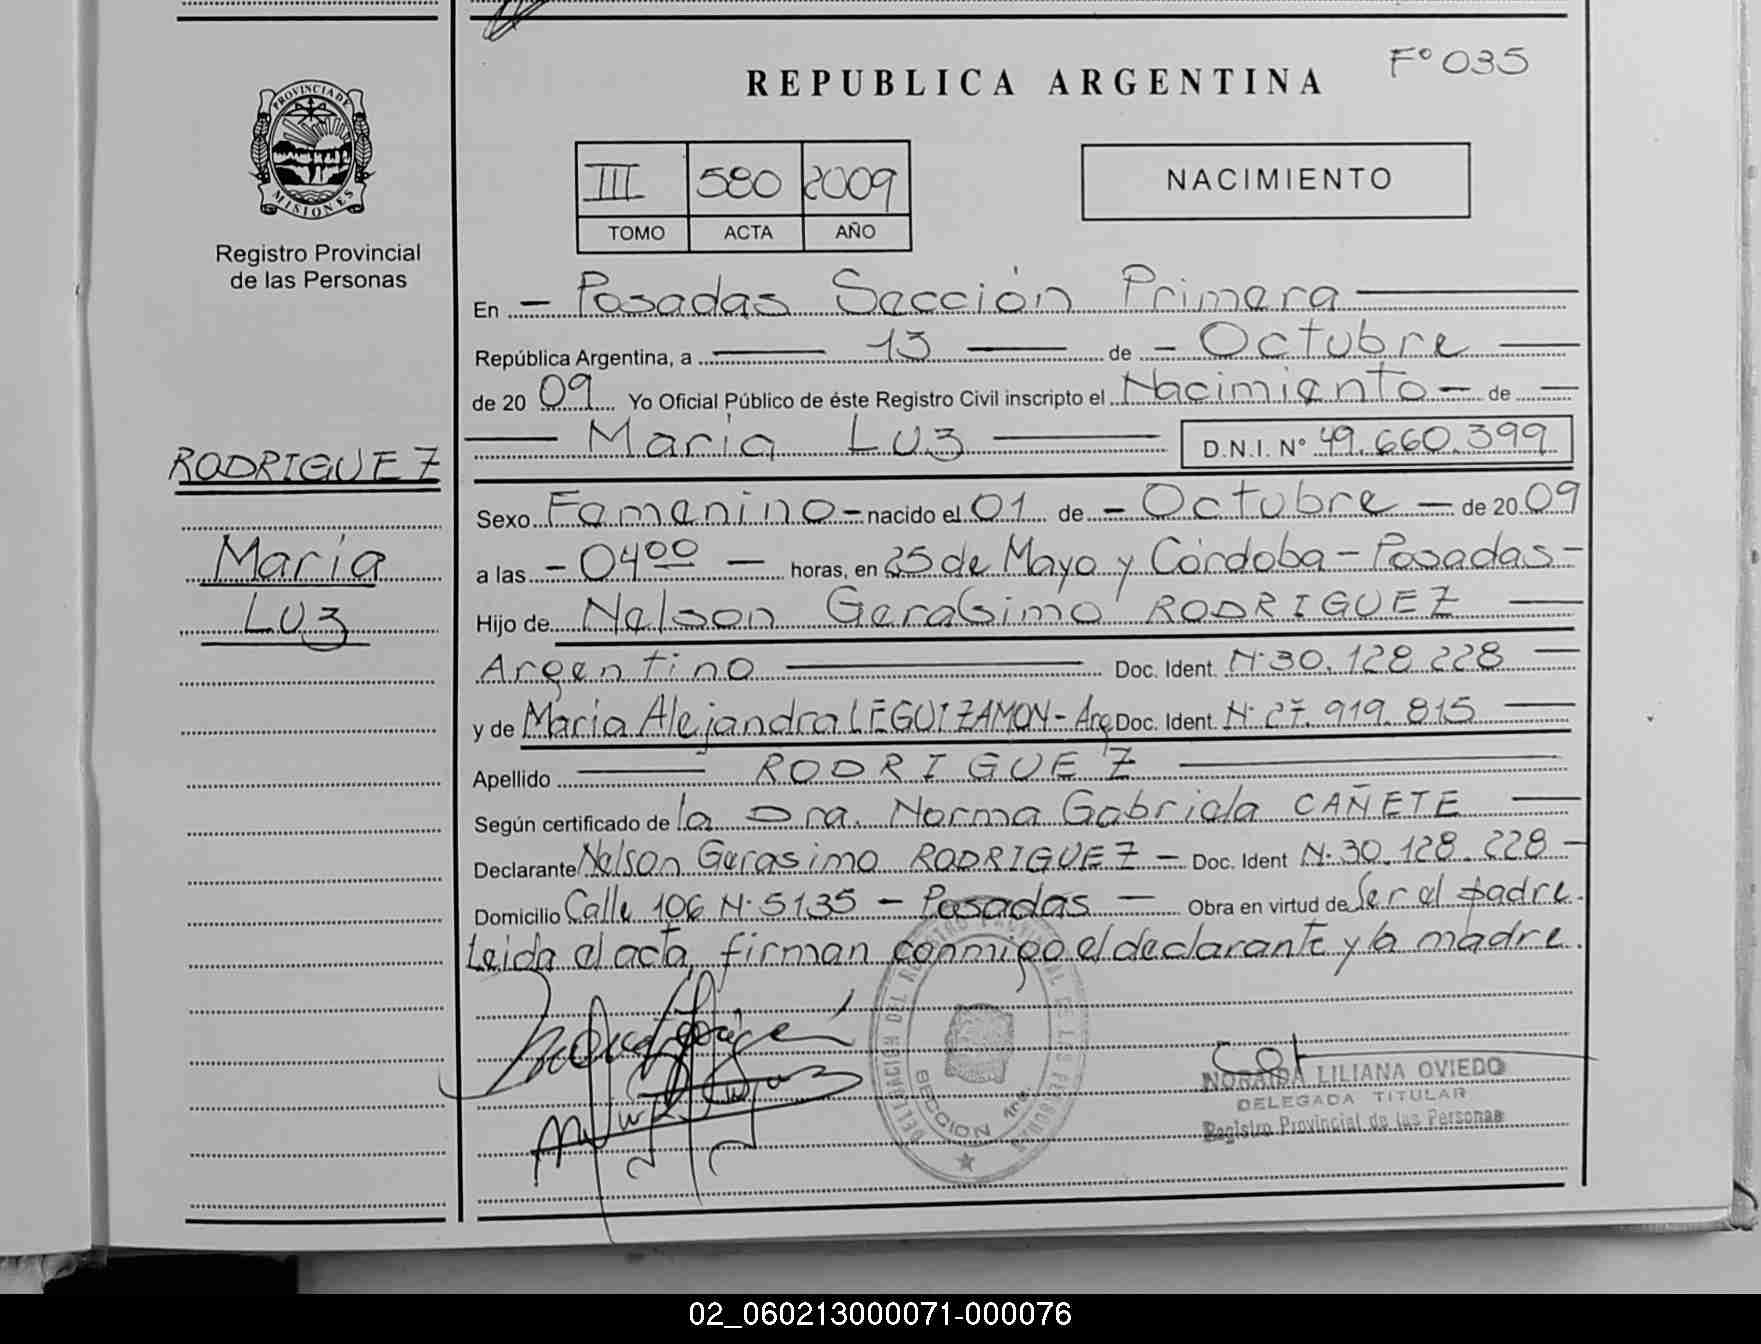 Fº 035
REPUBLICA ARGENTINA
PROVINCIA DE
MISIONES
Registro Provincial
de las Personas
III 580 2009
TOMO ACTA AÑO
NACIMIENTO
En – Posadas Sección Primera
República Argentina, a 13 de – Octubre
de 20 09 Yo Oficial Público de éste Registro Civil inscripto el Nacimiento – de –
María Luz D.N.I. Nº 49.660.399
RODRIGUEZ
María
Luz
Sexo Femenino – nacido el 01 de – Octubre – de 20 09
a las – 04⁰⁰ – horas, en 25 de Mayo y Córdoba – Posadas –
Hijo de Nelson Gerasimo RODRIGUEZ
Argentino Doc. Ident. Nº 30.128.228
y de María Alejandra LEGUIZAMON – Arg Doc. Ident. Nº 27.919.815
Apellido RODRIGUEZ
Según certificado de la Dra. Norma Gabriela CAÑETE
Declarante Nelson Gerasimo RODRIGUEZ – Doc. Ident Nº 30.128.228 –
Domicilio Calle 106 Nº 5135 – Posadas – Obra en virtud de Ser el padre.
Leida el acta, firman conmigo el declarante y la madre.
DELEGACION DEL REGISTRO PROVINCIAL DE LAS PERSONAS
SECCION 1ra.
NORAIDA LILIANA OVIEDO
DELEGADA TITULAR
Registro Provincial de las Personas
02_060213000071-000076